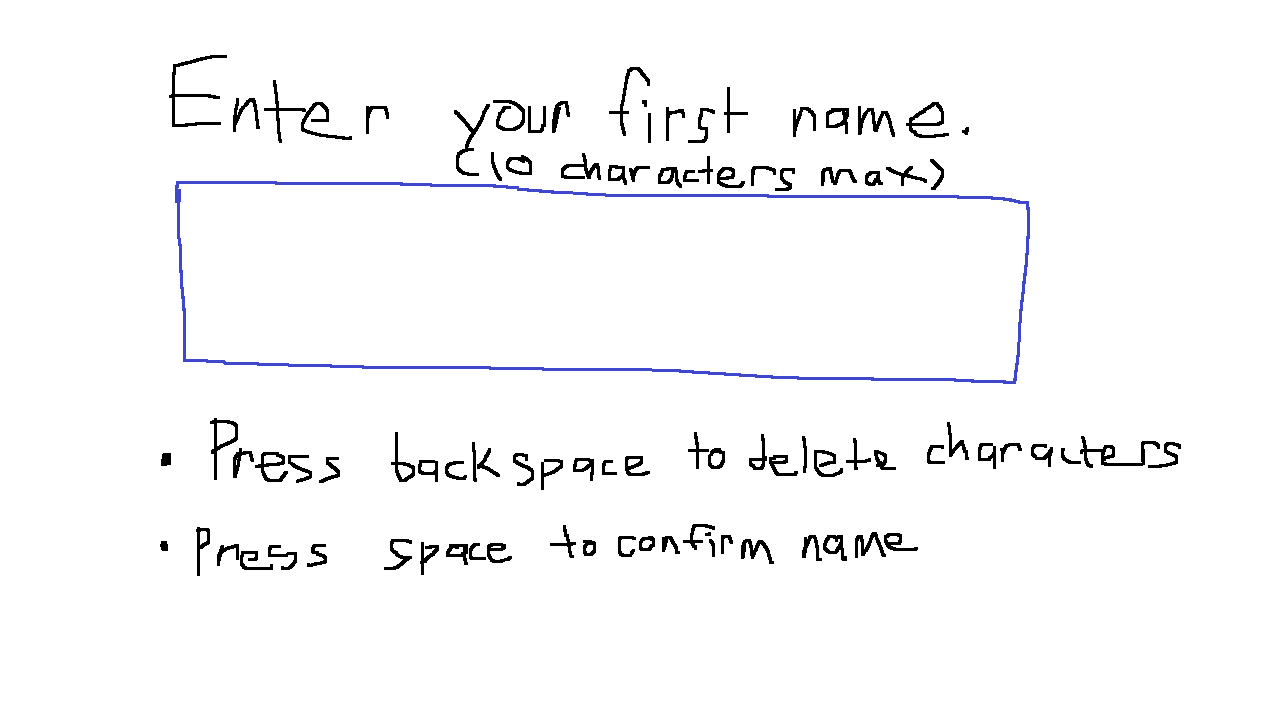 Enter your first name.
(10 characters max)
• Press backspace to delete characters
• Press space to confirm name